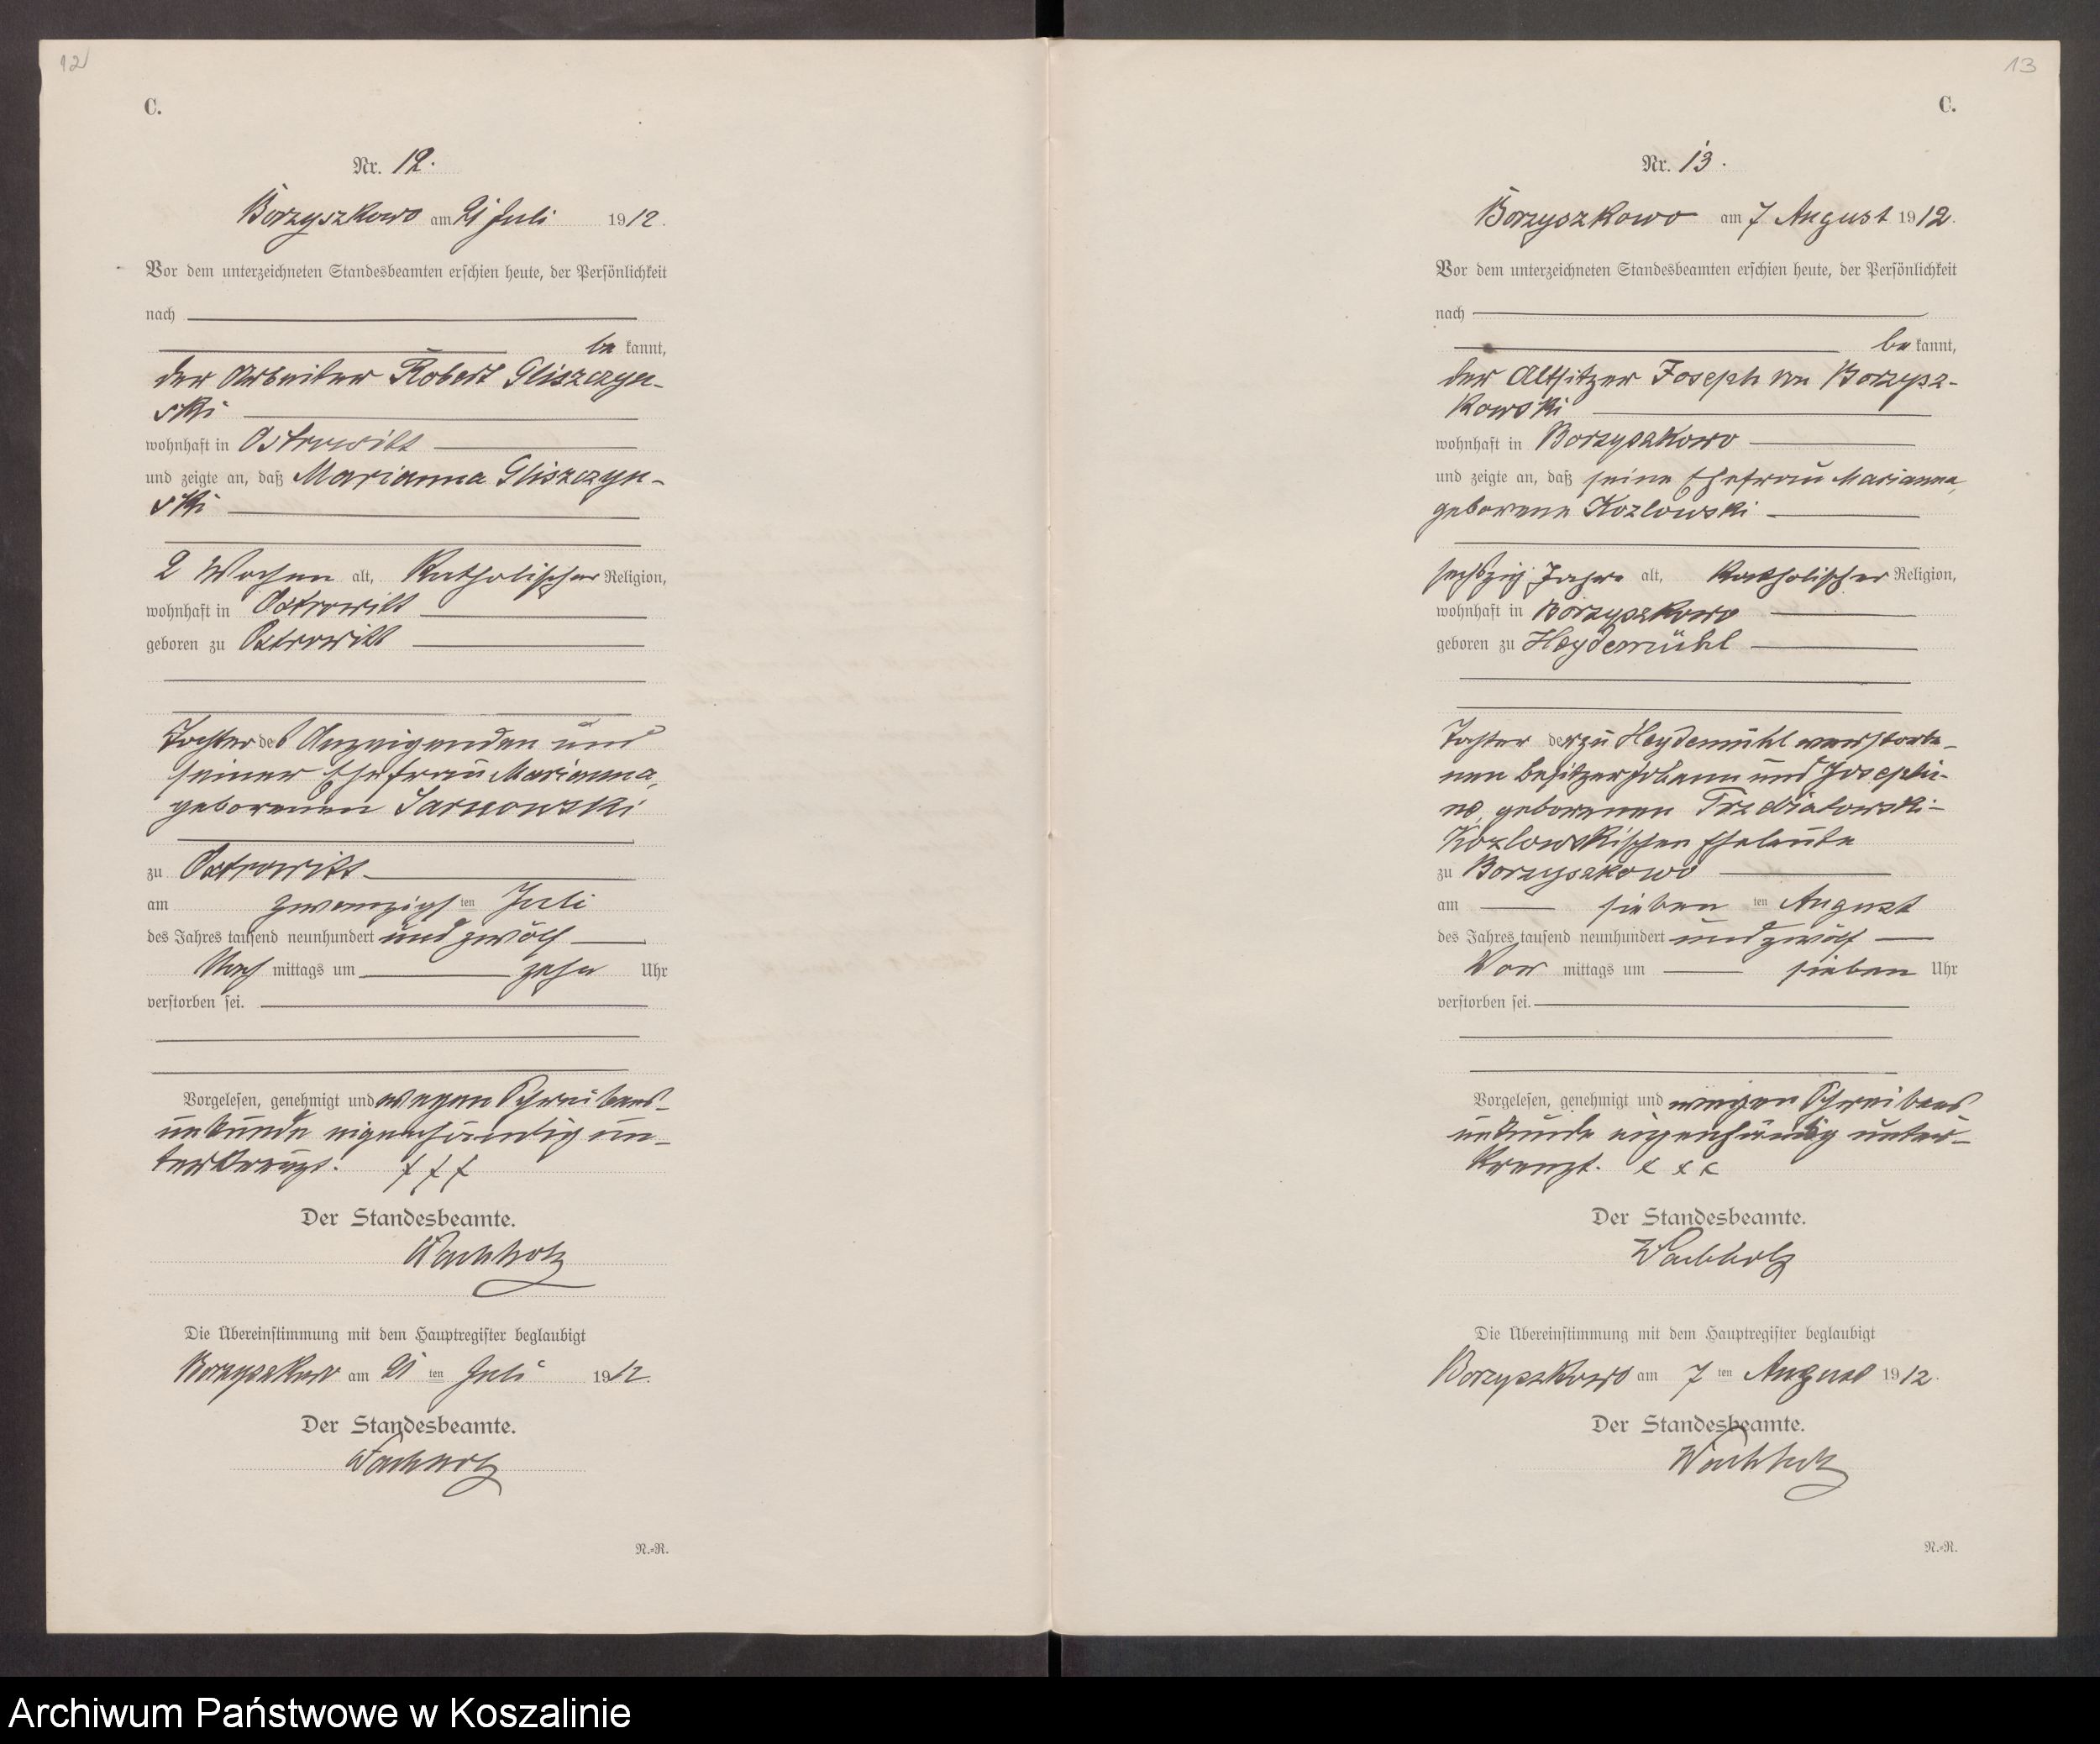 12
C.
Nr. 12.
Borzyszkowo am 21 Juli 1912.
Vor dem unterzeichneten Standesbeamten erschien heute, der Persönlichkeit
nach
be kannt,
der Arbeiter Robert Gliszczyn-
ski
wohnhaft in Ostrowitt
und zeigte an, daß Marianna Gliszczyn-
ski
2 Wochen alt, katholischer Religion,
wohnhaft in Ostrowitt
geboren zu Ostrowitt
Tochter des Anzeigenden und
seiner Ehefrau Marianna,
geborenen Sarnowski
zu Ostrowitt
am zwanzigsten Juli
des Jahres tausend neunhundert und zwölf
Nach mittags um zehn Uhr
verstorben sei.
Vorgelesen, genehmigt und wegen Schreibens-
unkunde eigenhändig un-
terkreuzt. +++
Der Standesbeamte.
Wachholz
Die Übereinstimmung mit dem Hauptregister beglaubigt
Borzyszkowo am 21 ten Juli 1912.
Der Standesbeamte.
Wachholz
N.-R.
13
C.
Nr. 13.
Borzyszkowo am 7 August 1912.
Vor dem unterzeichneten Standesbeamten erschien heute, der Persönlichkeit
nach
be kannt,
der Altsitzer Joseph von Borzysz-
kowski
wohnhaft in Borzyszkowo
und zeigte an, daß seine Ehefrau Marianna,
geborene Kozlowski
sechszig Jahre alt, katholischer Religion,
wohnhaft in Borzyszkowo
geboren zu Heydemühl
Tochter der zu Heydemühl verstorbe-
nen Besitzer Johann und Josephi-
ne, geborenen Trzebiatowski-
Kozlowskischen Eheleute
zu Borzyszkowo
am sieben ten August
des Jahres tausend neunhundert und zwölf
Vor mittags um sieben Uhr
verstorben sei.
Vorgelesen, genehmigt und wegen Schreibens
unkunde eigenhändig unter-
kreuzt. x x x
Der Standesbeamte.
Wachholz
Die Übereinstimmung mit dem Hauptregister beglaubigt
Borzyszkowo am 7 ten August 1912.
Der Standesbeamte.
Wachholz
N.-R.
Archiwum Państwowe w Koszalinie